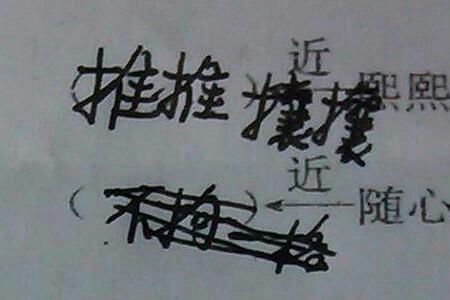 近
(推推攘攘)←熙熙
近
(不拘一格)←随心